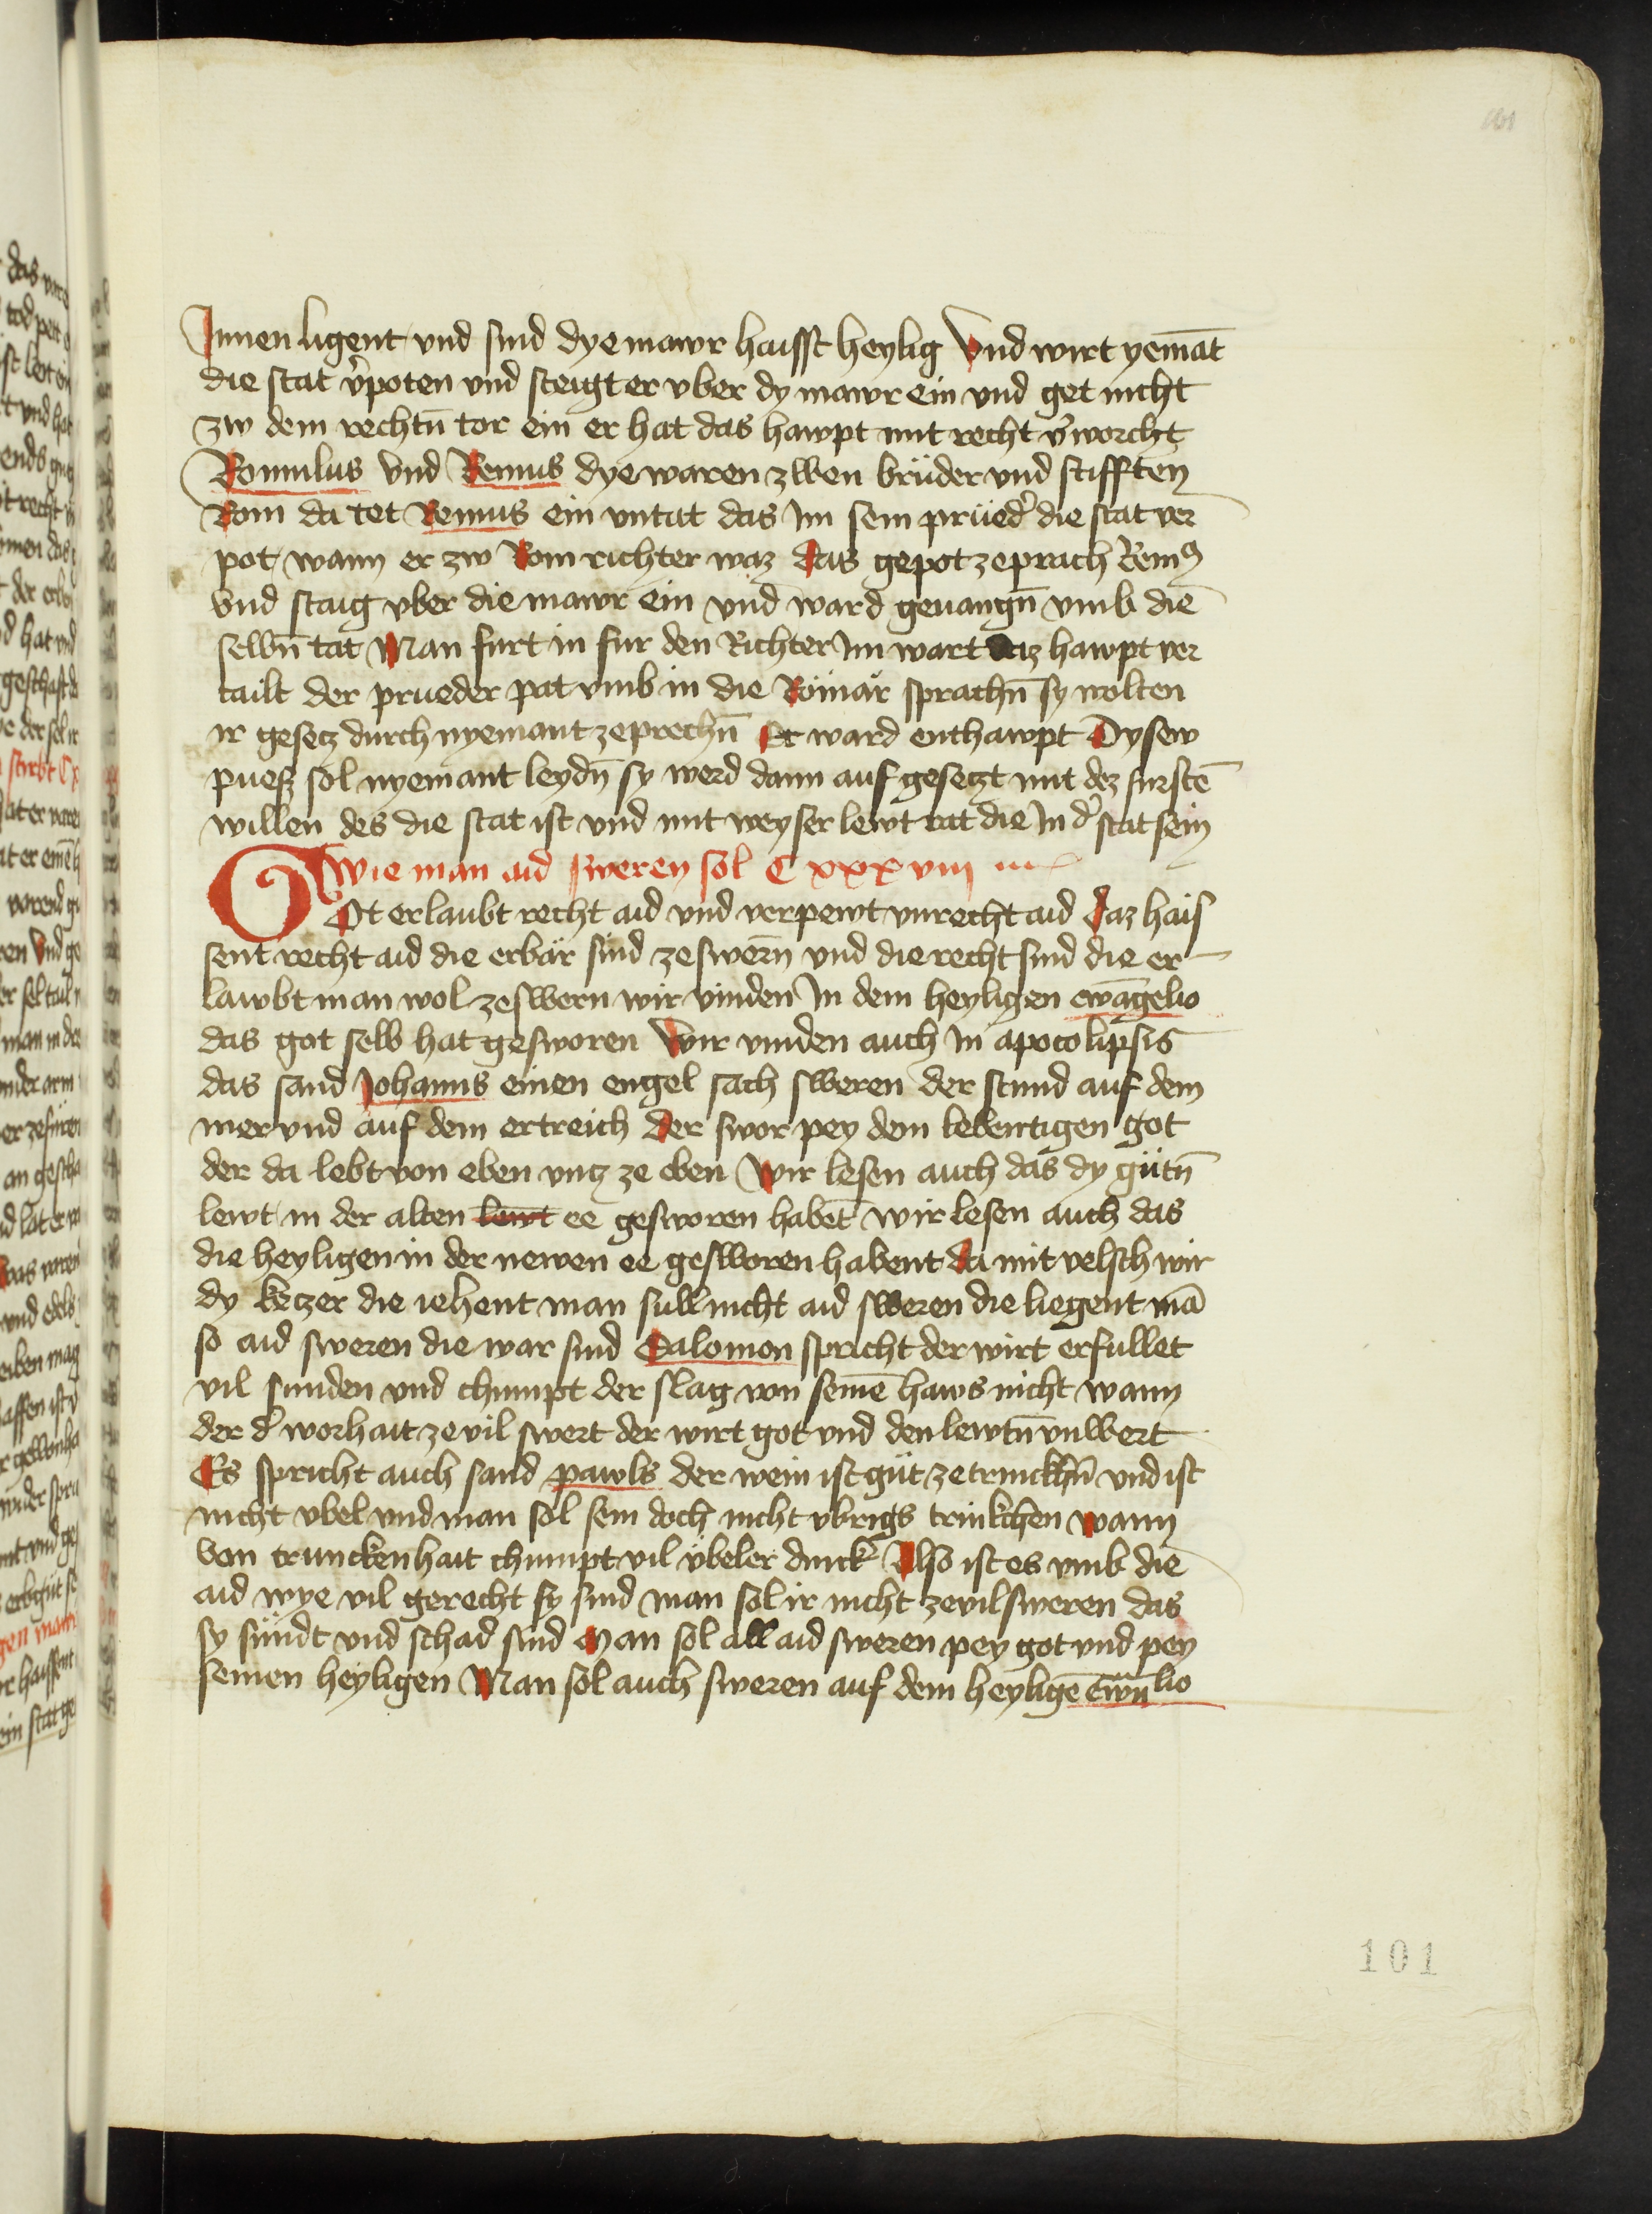 101
Innen ligent vnd sind dye mawr haisst heylig Vnd wirt yemāt
die stat v̉poten vnd steigt er vber dy mawr ein vnd get nicht
zw dem rechtn̄ tor ein er hat das hawpt mit recht v̉worcht
Romulus vnd Remus dye waren zwen brüder vnd stifften
Rom da tet Remus ein vntat das Im sein prüed̉ die stat ver
pot wann er zw Rom richter waz das gepot zeprach Remꝰ
vnd staig vber die mawr ein vnd ward geuangn̄ vmb die
selbn̄ tat Man furt in fur den Richter Im wart daz hawpt ver
tailt der prueder pat vmb in die Römär sprachn̄ sy wolten
ir gesetz durch nyemant zeprechn̄ Er ward enthawpt Dysew
puess sol nyemant leydn̄ sy werd dann auf gesetzt mit dez furstē
willen des die stat ist vnd mit weyser lewt rat die In d̉ stat sein
Wie man aid sweren sol C xxx viii
Got erlaubt recht aid vnd verpewt vnrecht aid daz hais
sent recht aid die erbär sind zeswern̄ vnd die recht sind die er
lawbt man wol zeswern wir vinden In dem heyligen ewāgelio
das got selb hat gesworen Wir vinden auch In apocolipsis
das sand Johanns einen engel sach sweren der stund auf dem
mer vnd auf dem ertreich der swor pey dem lebentigen got
der da lebt von eben vncz ze eben Wir lesen auch das dy gütn̄
lewt in der alten lewt ee gesworen habēt wir lesen auch das
die heyligen in der newen ee gesworen habent da mit velsch wir
dy ketzer die iehent man süll nicht aid sweren die liegent mā
so aid sweren die war sind Salomon spricht der wirt erfullet
vil sunden vnd chumpt der slag von seinē haws nicht wann
der d̉ worhait ze vil swert der wirt got vnd den lewtn̄ vnwert
Es spricht auch sand pawls der wein ist güt ze trinckhn̄ vnd ist
nicht vbel vnd man sol sein doch nicht vbrigs trinkchen wann
von trunckenhait chumpt vil vbeler dinck Also ist es vmb die
aid wye vil gerecht sy sind man sol ir nicht zevil sweren das
sy sündt vnd schad sind Man sol all aid sweren pey got vnd pey
seinen heyligen Man sol auch sweren auf dem heyligē ewn̄lio
101